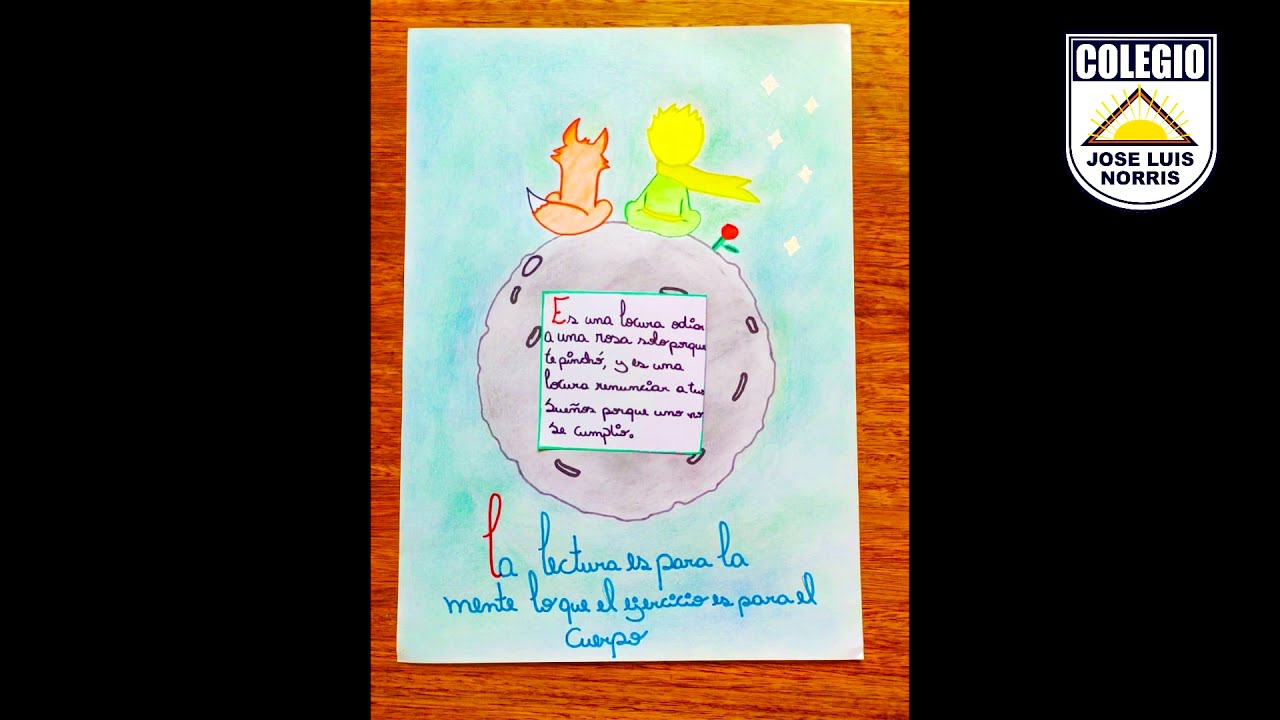 COLEGIO
JOSE LUIS
NORRIS
Es una locura odiar
a una rosa solo porque
te pinchó, y es una
locura renunciar a tus
sueños porque uno no
se cumplio.
La lectura es para la
mente lo que el ejercicio es para el
Cuerpo